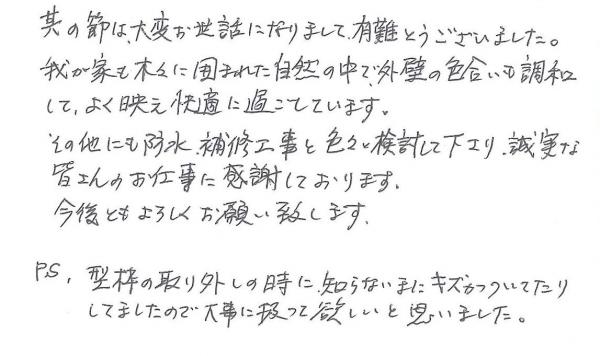 其の節は、大変お世話になりまして、有難とうございました。
我が家も木々に囲まれた自然の中で、外壁の色合いも調和
して、よく映え快適に過ごしています。
その他にも防水、補修工事と色々検討して下さり、誠実な
皆さんのお仕事に感謝しております。
今後ともよろしくお願い致します。
P.S. 型枠の取り外しの時に、知らないまにキズがついてたり
してましたので大事に扱って欲しいと思いました。